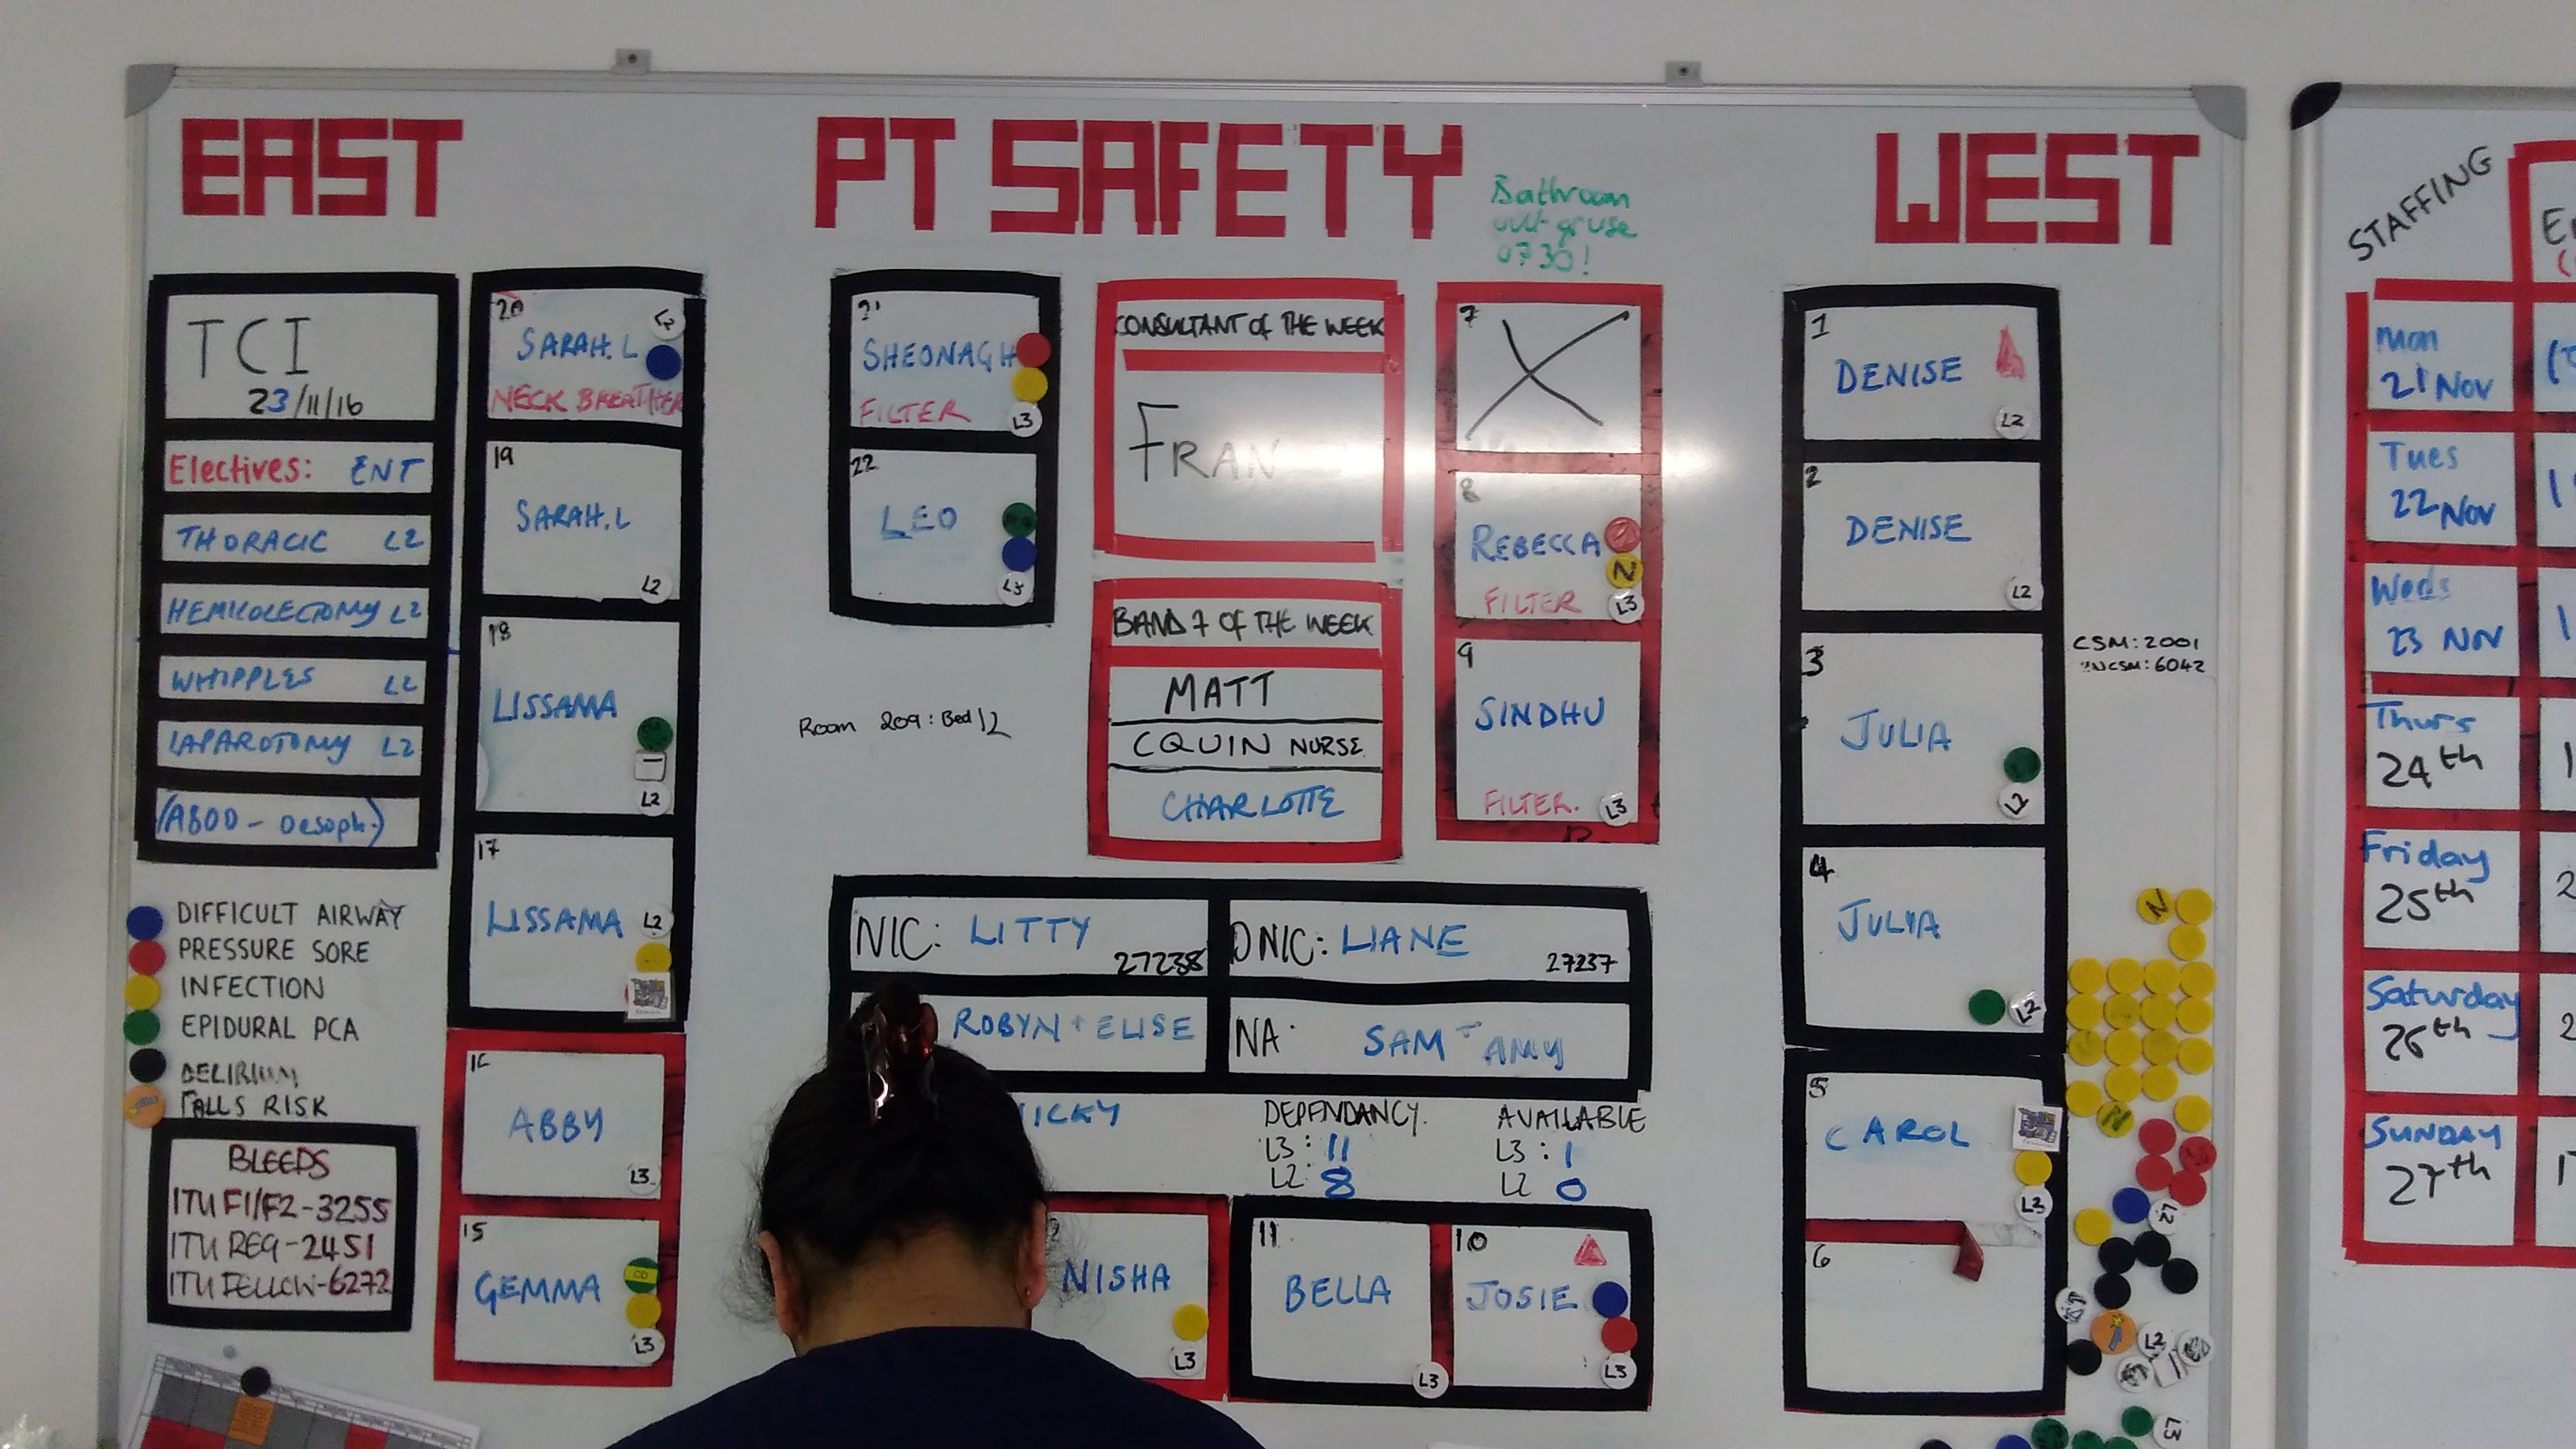 EAST
PT SAFETY
WEST
Bathroom
0730!
TCI
23/11/16
Electives: ENT
THORACIC L2
HEMICOLECTOMY L2
WHIPPLES L2
LAPAROTOMY L2
(ABOD - Oesoph.)
DIFFICULT AIRWAY
PRESSURE SORE
INFECTION
EPIDURAL PCA
DELIRIUM
FALLS RISK
BLEEPS
ITU F1/F2-3255
ITU REG-2451
ITU FELLOW-6272
20
SARAH. L
L2
NECK BREATHER
19
SARAH. L
L2
18
LISSAMA
L2
17
LISSAMA L2
16
ABBY
L3
15
GEMMA
CD
L3
21
SHEONAGH
FILTER L3
22
LEO
L3
Room 209: Bed 12
CONSULTANT OF THE WEEK
FRAN
BAND 7 OF THE WEEK
MATT
CQUIN NURSE
CHARLOTTE
7
8
REBECCA
N
FILTER L3
9
SINDHU
FILTER. L3
NIC: LITTY
27238
DNIC: LIANE
27237
ROBYN + ELISE
NA: SAM + AMY
DEPENDANCY.
L3: 11
L2: 8
AVAILABLE
L3: 1
L2 0
NISHA
L3
11
BELLA
L3
10
JOSIE
L3
1
DENISE
L2
2
DENISE
L2
3
JULIA
L2
4
JULIA
L2
5
CAROL
L3
6
CSM: 2001
N
N
L2
L2
L3
STAFFING
Mon
21 Nov
Tues
22 Nov
Weds
23 Nov
Thurs
24th
Friday
25th
Saturday
26th
SUNDAY
27th